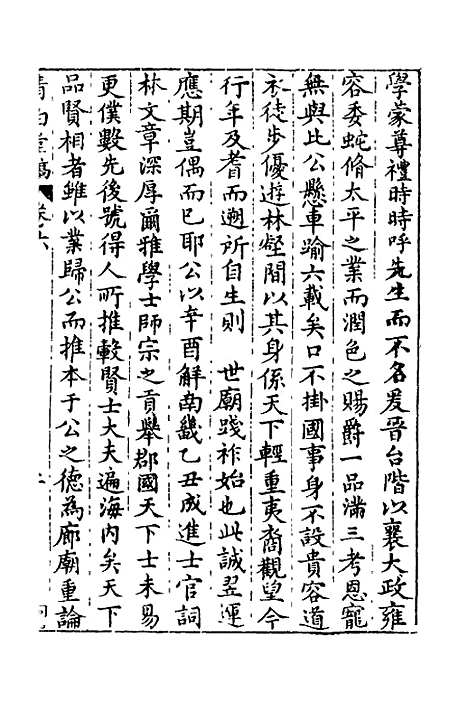 學蒙尊禮時時呼先生而不名爰晉台階以襄大政雍
容委蛇脩太平之業而潤色之賜爵一品滿三考恩寵
無與比公懸車踰六載矣口不掛國事身不設貴容道
衣徒步優遊林壑間以其身係天下輕重夷裔觀望今
行年及耆而遡所自生則　世廟踐祚始也此誠翌運
應期豈偶而已耶公以辛酉解南畿乙丑成進士官詞
林文章深厚爾雅學士師宗之貢舉郡國天下士未易
更僕數先後號得人所推轂賢士大夫遍海內矣天下
品賢相者雖以業歸公而推本于公之德為廊廟重論